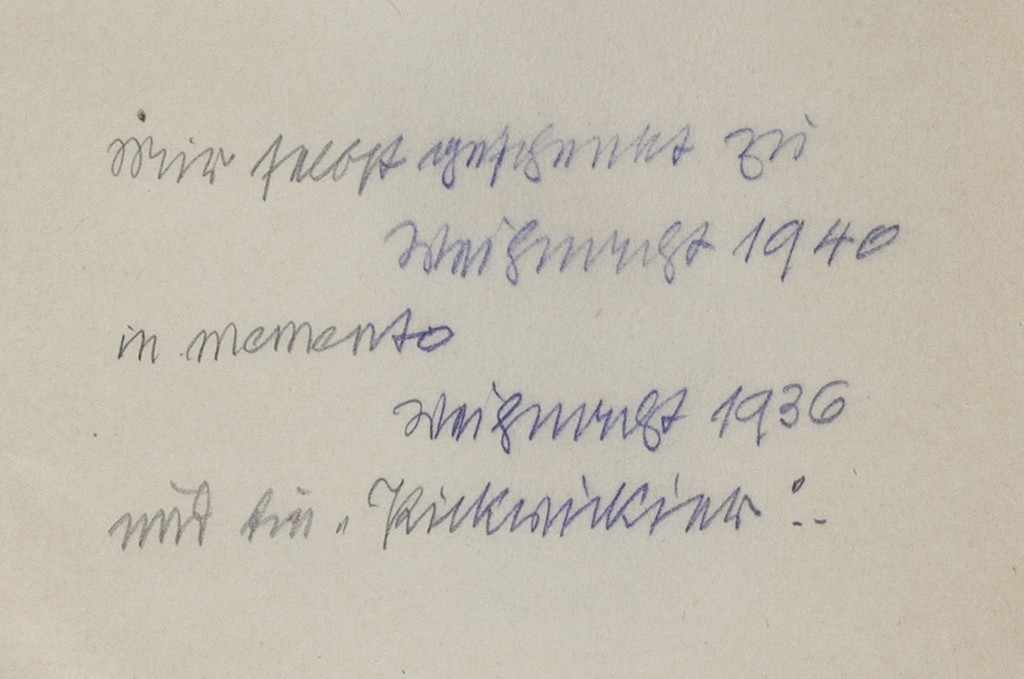 Mir selbst geschenkt zu
Weihnacht 1940
in memento
Weihnacht 1936
und die „Pickwickier“..